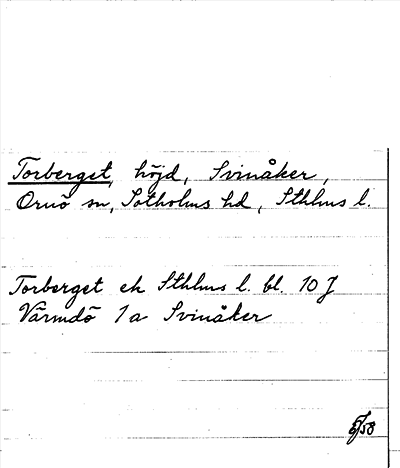 Torberget, höjd, Svinåker,
Ornö sn, Sotholms hd, Sthlms l.
Torberget ek Sthlms l. bl. 10 J
Värmdö 1a Svinåker